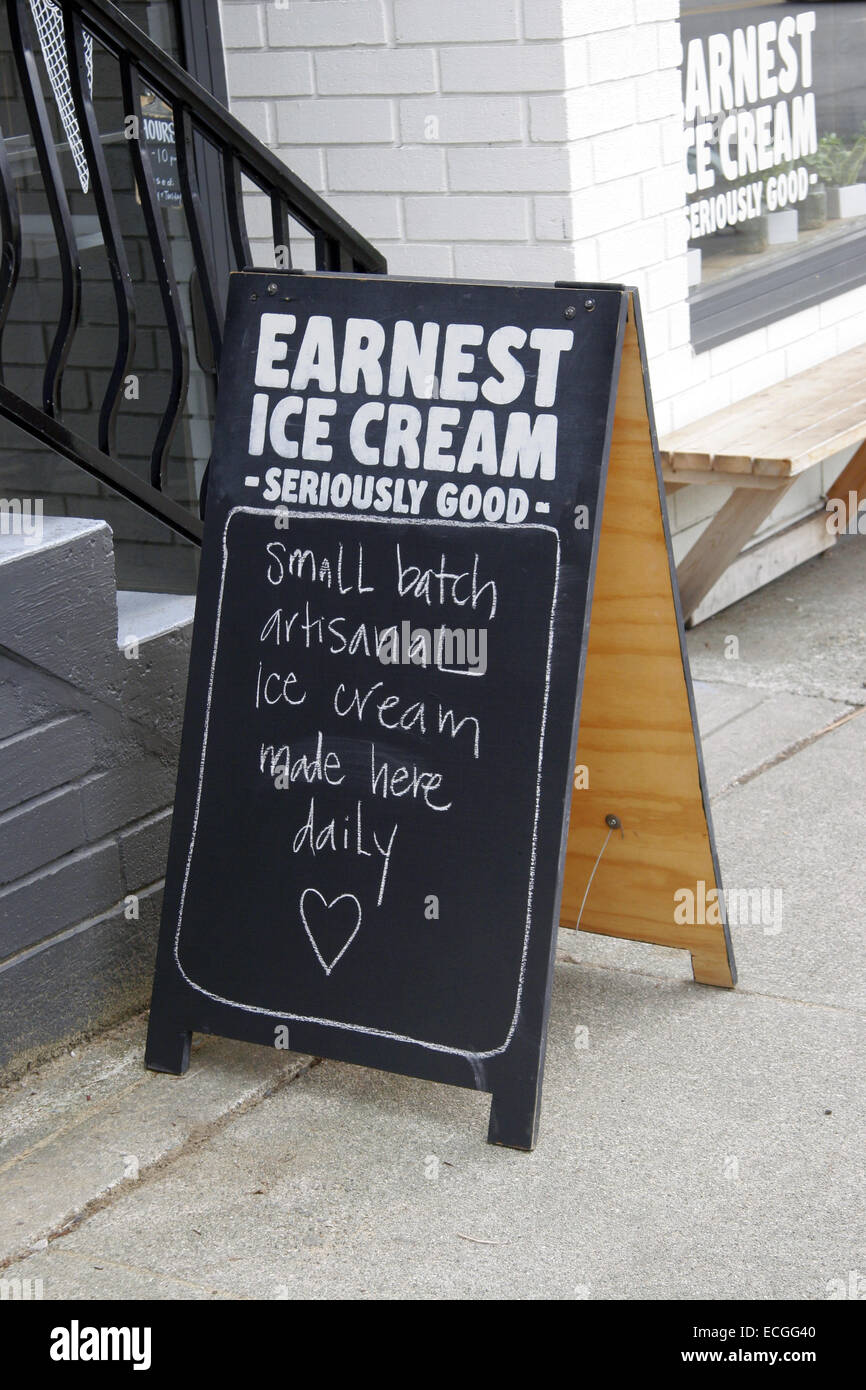 HOURS
- 10 pm
EARNEST
ICE CREAM
SERIOUSLY GOOD-
EARNEST
ICE CREAM
-SERIOUSLY GOOD-
Small batch
artisanal
ice cream
made here
daily
alamy
Image ID: ECGG40
www.alamy.com